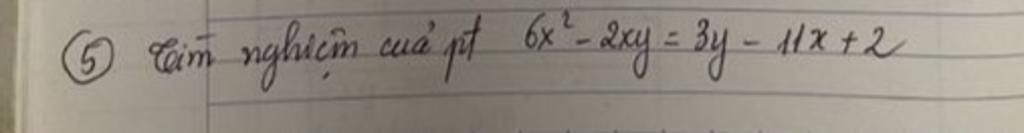 ⑤ Tìm nghiệm cuả pt 6x² - 2xy = 3y - 11x + 2